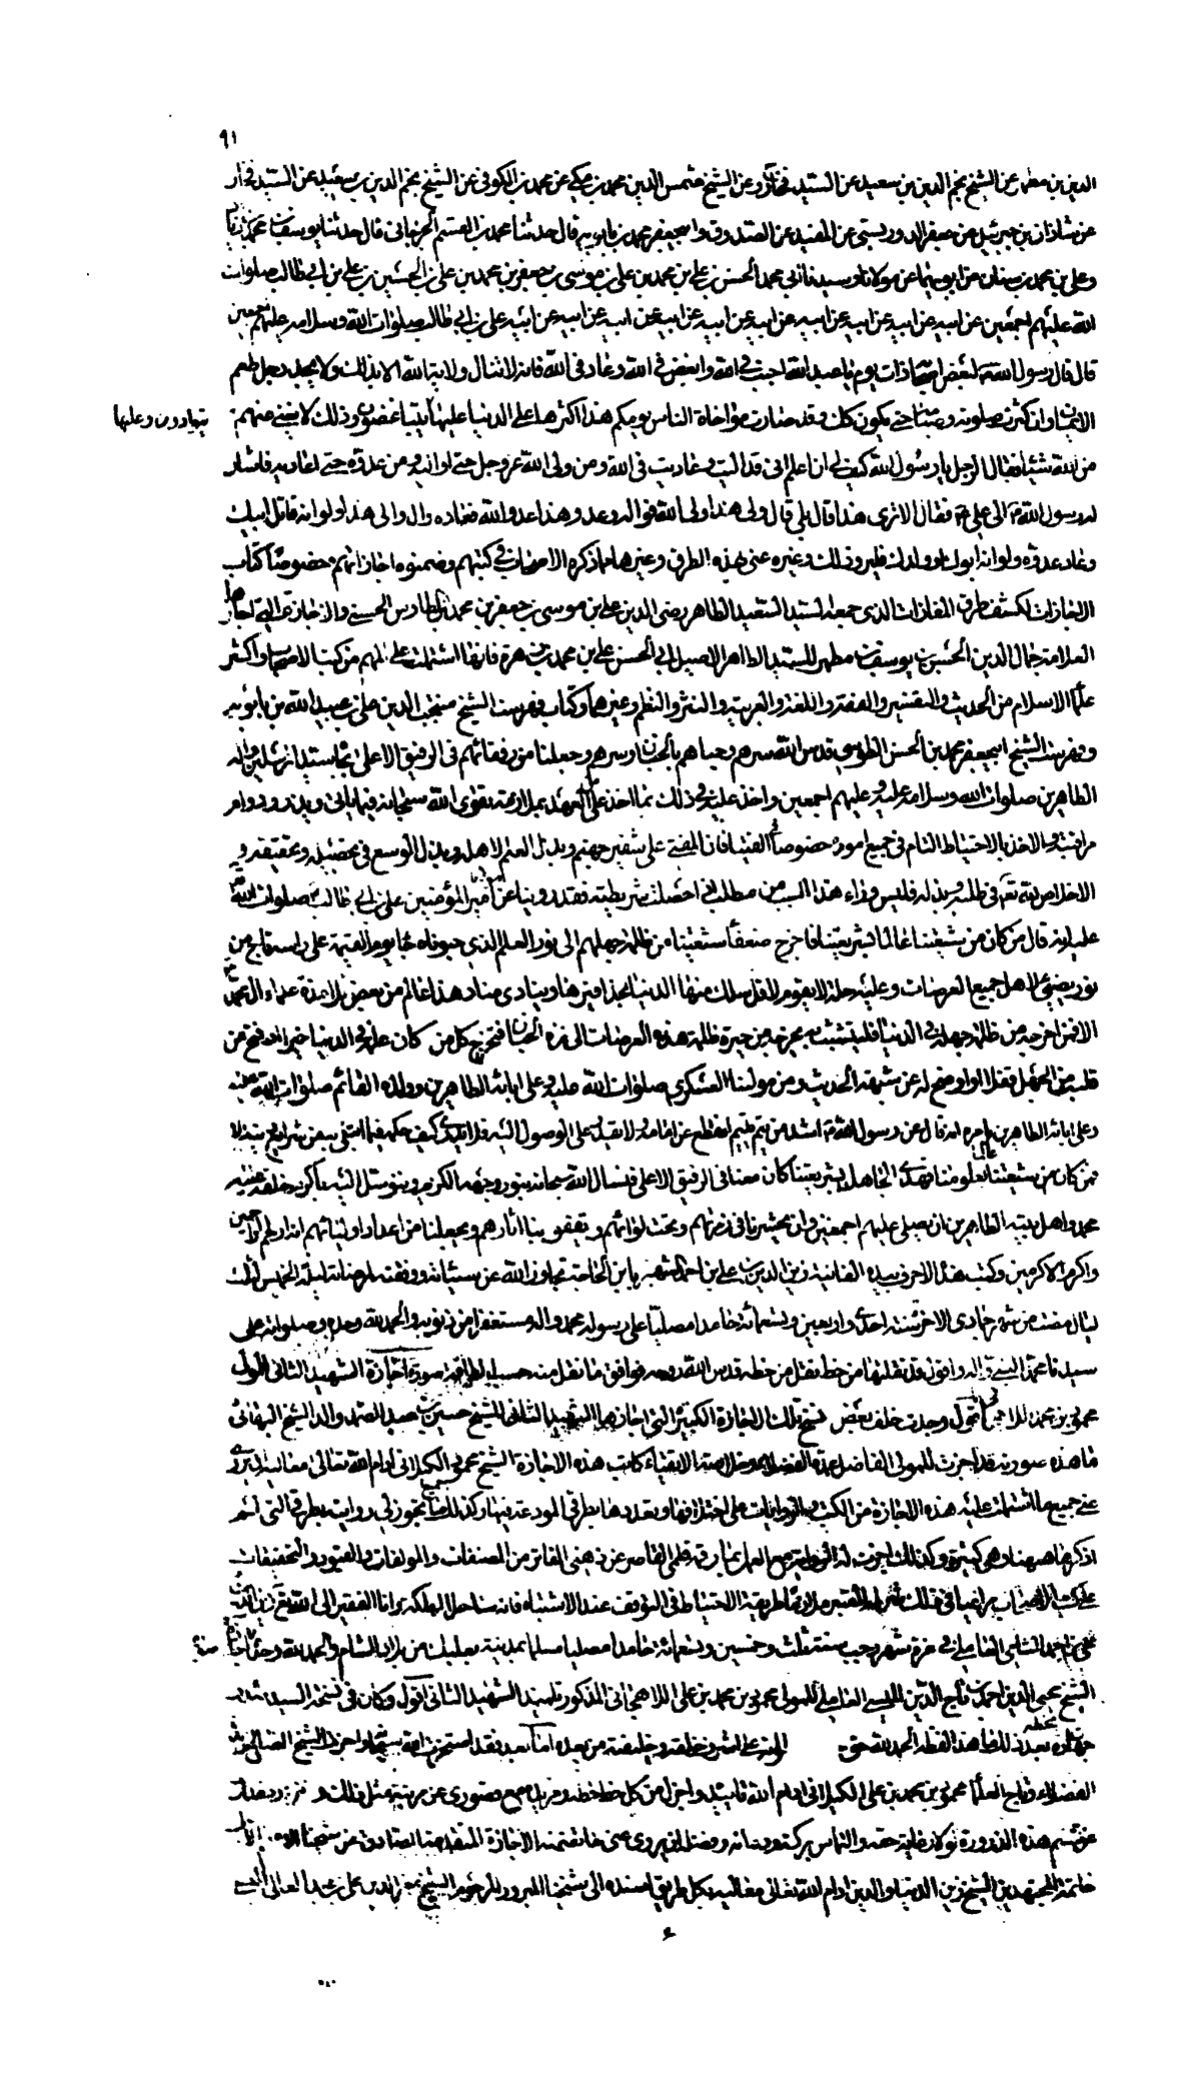 ٩١
الدين بن مطهر عن الشيخ نجم الدين بن سعيد عن السيد فخار وعن الشيخ شمس الدين محمد بن مكي عن محمد بن الكوفي عن الشيخ نجم الدين بن سعيد عن السيد فخار
عن شاذان بن جبرئيل عن جعفر الدوريستي عن المفيد عن الصدوق وابيجعفر محمد بن بابويه قال حدثنا محمد بن القسم الجرجاني قال حدثنا يوسف بن محمد بن زياد
وعلي بن محمد بن سنان عن ابويهما عن مولانا وسيدنا ابي محمد الحسن بن علي بن محمد بن علي بن موسى بن جعفر بن محمد بن علي بن الحسين بن علي بن ابي طالب صلوات
الله عليهم اجمعين عن ابيه عن ابيه عن ابيه عن ابيه عن ابيه عن ابيه عن ابيه عن ابيه عن ابيه علي بن ابي طالب صلوات الله وسلامه عليهم اجمعين
قال قال رسول الله لبعض اصحابه ذات يوم يا عبد الله احبب في الله وابغض في الله وعاد في الله فانه لا تنال ولاية الله الا بذلك ولا يجد رجل طعم
الايمان وان كثرت صلوته وصيامه حتى يكون كذلك وقد صارت مؤاخاة الناس يومكم هذا اكثرها على الدنيا عليها يتباغضون وذلك لا يغني عنهم
يتوادون وعليها
من الله شيئا فقال الرجل يا رسول الله كيف لي ان اعلم اني قد واليت وعاديت في الله ومن ولي الله عز وجل حتى اواليه ومن عدوه حتى اعاديه فاشار
له رسول الله ص الى علي ع فقال الا ترى هذا قال بلى قال ولي هذا ولي الله فواله وعدو هذا عدو الله فعاده وال والي هذا ولو انه قاتل ابيك
وعاد عدوه ولو انه ابوك او ولدك فليرو ذلك وغيره عني بهذه الطرق وغيرها مما ذكره الاصحاب في كتبهم وضمنوه اجازاتهم خصوصا كتاب
الاجازات لكشف طرق المفازات الذي جمعه السيد السعيد الطاهر رضي الدين علي بن موسى بن جعفر بن محمد بن الطاوس الحسني والاجازة التي اجازها
العلامة جمال الدين الحسن بن يوسف بن مطهر للسيد الطاهر الاصيل ابي الحسن علي بن محمد بن زهرة فانها اشتملت على المهم من كتب الاصحاب واكثر
علماء الاسلام من الحديث والتفسير والفقه واللغة والعربية والنثر والنظم وغيرها وكتاب فهرست الشيخ منتجب الدين علي بن عبيد الله بن بابويه
وفهرست الشيخ ابيجعفر محمد بن الحسن الطوسي قدس الله سرهم وحباهم بالجنان وسرهم وجعلنا من رفقائهم في الرفيق الاعلى بجاه سيد المرسلين واله
الطاهرين صلوات الله وسلامه عليه وعليهم اجمعين واخذ عليه في ذلك بما اخذ علي العهد بملازمة تقوى الله سبحانه فيما ياتي ويذر ودوام
مراقبته والاخذ بالاحتياط التام في جميع اموره خصوصا الفتيا فان المفتي على شفير جهنم وبذل العلم لاهله وبذل الوسع في تحصيله وتحقيقه و
الاخلاص لله تعالى في طلبه وبذله فليس وراء هذا السبب من مطلب اذا حصلت شرايطه فقد روينا عن امير المؤمنين علي بن ابي طالب صلوات الله
عليه انه قال من كان من شيعتنا عالما بشريعتنا فاخرج ضعفاء شيعتنا من ظلمة جهلهم الى نور العلم الذي حبوناه جاء يوم القيمة على راسه تاج من
نور يضيء لاهل جميع العرصات وعليه حلة لا يقوم لاقل سلك منها الدنيا بحذافيرها وينادي مناد هذا عالم من بعض تلامذة علماء آل محمد
الا فمن اخرجه من ظلمة جهله في الدنيا فليتشبث به يخرجه من حيرة ظلمة هذه العرصات الى نزه الجنان فتخرج كل من كان علمه في الدنيا خيرا او فتح من
قلبه من الجهل قفلا او اوضح له عن شبهة الحديث وعن مولانا العسكري صلوات الله عليه وعلى ابائه الطاهرين وولده القائم صلوات الله عليه
وعلى ابائه الطاهرين انه قال عن رسول الله ص اشد من يتم يتيم انقطع عن امامه ولا يقدر على الوصول اليه فلا يدري كيف حكمه فيما ابتلي به من شرايع دينه الا
فمن كان من شيعتنا عالما بعلومنا فهدى الجاهل بشريعتنا كان معنا في الرفيق الاعلى فنسال الله سبحانه بنور وجهه الكريم ونتوسل اليه باكرم خلقه عليه
محمد واهل بيته الطاهرين ان يصلي عليهم اجمعين وان يحشرنا في زمرتهم وتحت لوائهم ويقفو بنا اثارهم ويجعلنا من اعداد اوليائهم انه ارحم الراحمين
واكرم الاكرمين وكتب هذه الاحرف بيده الفانية زين الدين بن علي بن احمد شهر بابن الحاجة تجاوز الله عن سيئاته ووفقه لمرضاته ليلة الخميس لثلث
ليال مضت من شهر جمادي الاخر سنة احدى واربعين وتسعمائة حامدا مصليا على رسوله محمد واله مستغفرا من ذنوبه والحمد لله وحده وصلواته على
سيدنا محمد النبي واله اقول قد نقلتها من خط نقل من خطه قدس الله روحه فوافق ما نقل منه حسب الطاقة صورة اجازة الشهيد الثاني للمولى
محمود بن محمد اللاهجي اقول وجدت خلف بعض نسخ تلك الاجازة الكبيرة التي اجازها الشهيد الثاني للشيخ حسين بن عبد الصمد والد الشيخ البهائي
ما هذه صورته قد اجزت للمولى الفاضل عمدة الفضلاء وخلاصة الاتقياء كاتب هذه الاجازة الشيخ محمود الكيلاني ادام الله تعالى معاليه ان يروي
عني جميع ما اشتملت عليه هذه الاجازة من الكتب والروايات على اختلافها وتعددها بطرقي المودعة فيها وكذلك ما يجوز لي روايته بطرقي التي لم
اذكرها هيهنا وهي كثيرة وكذلك اجزت له الرواية مع العمل بما رقمه قلمي القاصر عن ذهني الفاتر من المصنفات والمؤلفات والقيود والتحقيقات
على كتب الاصحاب مراعيا في ذلك شرايط المعتبر ملازما طريقة الاحتياط في التوقف عند الاشتباه فانه ساحل الهلكة وانا الفقير الى الله تعالى زين الدين
علي بن احمد الشامي العاملي في غرة شهر رجب سنة ثلث وخمسين وتسعمائة حامدا مصليا مسلما بمدينة بعلبك من بلاد الشام والحمد لله وحده
صورة
الشيخ محيي الدين احمد بن تاج الدين الميسي العاملي للمولى محمود بن محمد بن علي اللاهجاني المذكور تلميذ الشهيد الثاني اقول وكان في نسخة السيد
هذا لفظه الحمد لله حق
الفضلاء وتاج العلماء محمود بن محمد بن علي الكيلاني ادام الله تاييده واجزل من كل حظ حظه ومزيده مع قصوري عن مرتبة مثل ذلك و
خاتمة المجتهدين الشيخ زين الدنيا والدين ادام الله تعالى معاليه بكل طريق اسنده الى شيخنا المبرور المرحوم الشيخ نور الدين علي بن عبد العالي الميسي